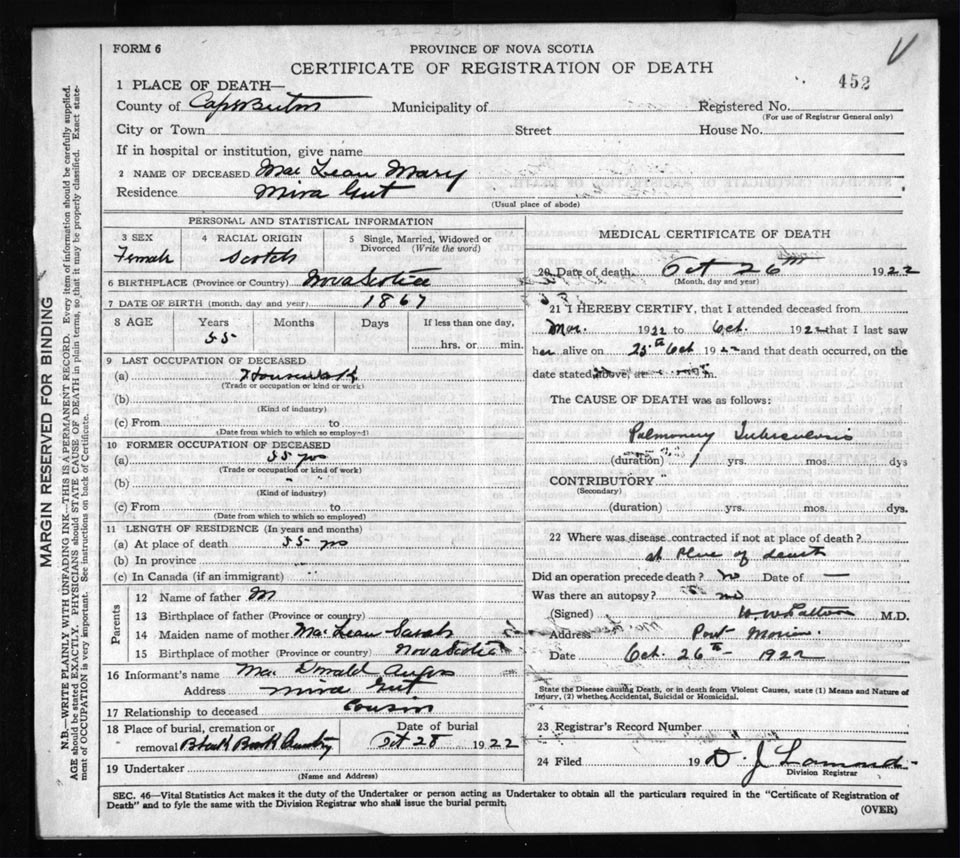 FORM 6
PROVINCE OF NOVA SCOTIA
CERTIFICATE OF REGISTRATION OF DEATH
452
1 PLACE OF DEATH—
County of Cape Breton Municipality of Registered No.
(For use of Registrar General only)
City or Town Street House No.
If in hospital or institution, give name
2 NAME OF DECEASED Mac Lean Mary
Residence Mira Gut
(Usual place of abode)
PERSONAL AND STATISTICAL INFORMATION
3 SEX 4 RACIAL ORIGIN 5 Single, Married, Widowed or
Divorced (Write the word)
Female Scotch
6 BIRTHPLACE (Province or Country) Nova Scotia
7 DATE OF BIRTH (month, day and year) 1867
8 AGE Years Months Days If less than one day,
55 hrs. or min.
9 LAST OCCUPATION OF DECEASED
(a) Housework
(Trade or occupation or kind or work)
(b)
(Kind of industry)
(c) From to
(Date from which to which so employed)
10 FORMER OCCUPATION OF DECEASED
(a) 55 yrs
(Trade or occupation or kind of work)
(b)
(Kind of industry)
(c) From to
(Date from which to which so employed)
11 LENGTH OF RESIDENCE (In years and months)
(a) At place of death 55 yrs
(b) In province
(c) In Canada (if an immigrant)
Parents
12 Name of father M
13 Birthplace of father (Province or country)
14 Maiden name of mother Mac Lean Sarah
15 Birthplace of mother (Province or country) Nova Scotia
16 Informant's name Mac Donald Angus
Address Mira Gut
17 Relationship to deceased Cousin
18 Place of burial, cremation or Date of burial
removal Black Brook Oct 28 1922
19 Undertaker
(Name and Address)
MEDICAL CERTIFICATE OF DEATH
20 Date of death Oct 26th 1922
(Month, day and year)
21 I HEREBY CERTIFY, that I attended deceased from
Mar. 1922 to Oct. 1922 that I last saw
her alive on 25th Oct 1922 and that death occurred, on the
date stated above, at m.
The CAUSE OF DEATH was as follows:
Pulmonary Tuberculosis
(duration) 1 yrs. mos. dys
CONTRIBUTORY
(Secondary)
(duration) yrs. mos. dys.
22 Where was disease contracted if not at place of death?
at place of death
Did an operation precede death? no Date of —
Was there an autopsy? no
(Signed) W. W. Patton M.D.
Address Port Morien.
Date Oct. 26th 1922
State the Disease causing Death, or in death from Violent Causes, state (1) Means and Nature of
Injury, (2) whether Accidental, Suicidal or Homicidal.
23 Registrar's Record Number
24 Filed 19 D. J. Lamond
Division Registrar
SEC. 46—Vital Statistics Act makes it the duty of the Undertaker or person acting as Undertaker to obtain all the particulars required in the "Certificate of Registration of
Death" and to fyle the same with the Division Registrar who shall issue the burial permit.
(OVER)
MARGIN RESERVED FOR BINDING
N.B.—WRITE PLAINLY WITH UNFADING INK—THIS IS A PERMANENT RECORD. Every item of information should be carefully supplied.
AGE should be stated EXACTLY. PHYSICIANS should STATE CAUSE OF DEATH in plain terms, so that it may be properly classified. Exact state-
ment of OCCUPATION is very important. See instructions on back of Certificate.